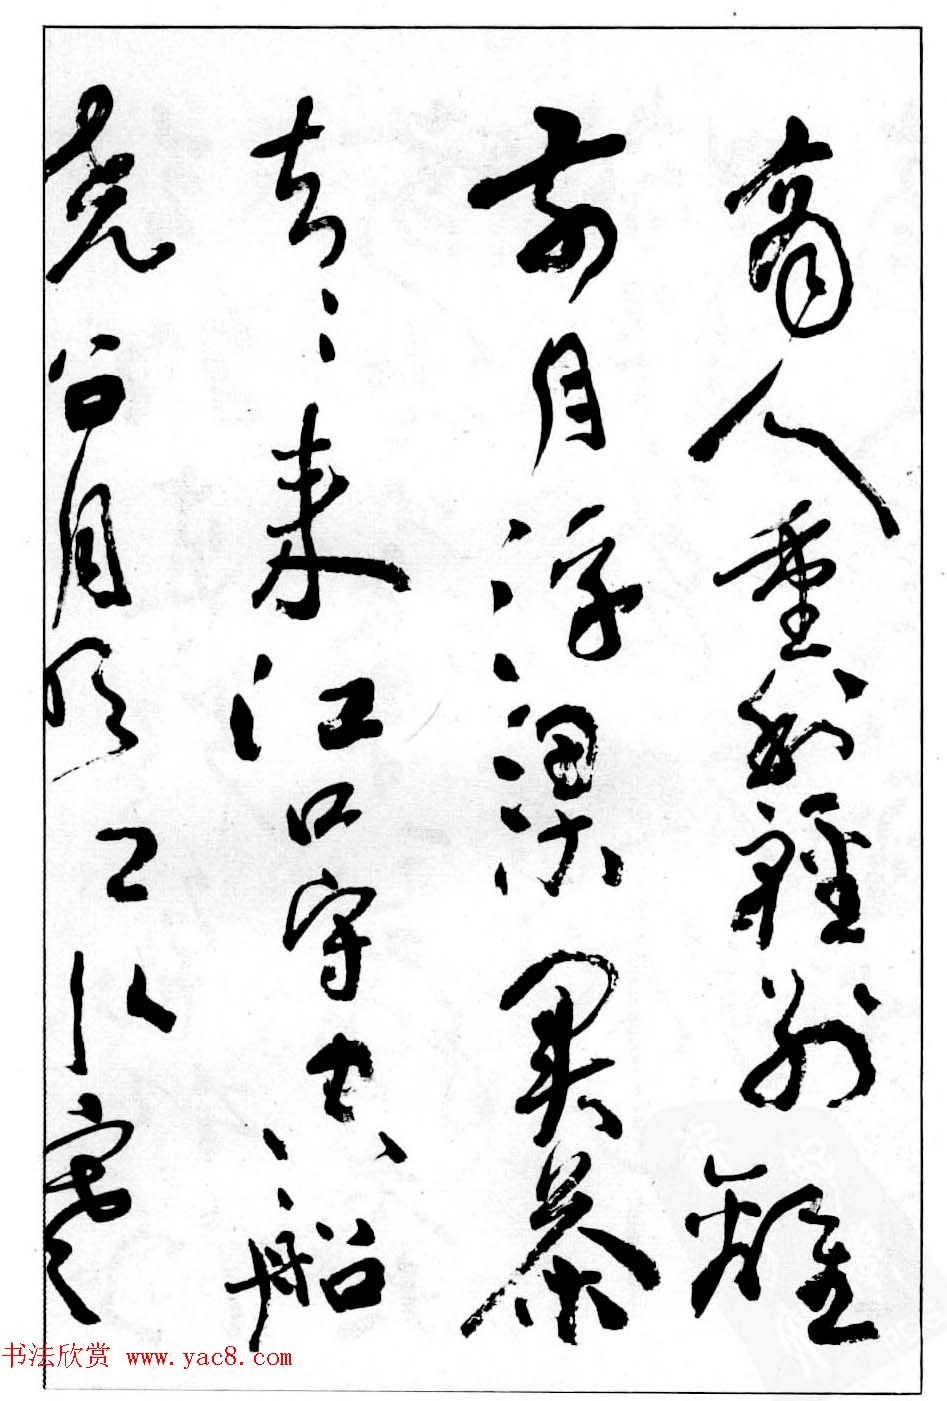 商人重利輕別離
前月浮梁買茶
去〻來江口守空船
繞船月明江水寒
书法欣赏 www.yac8.com